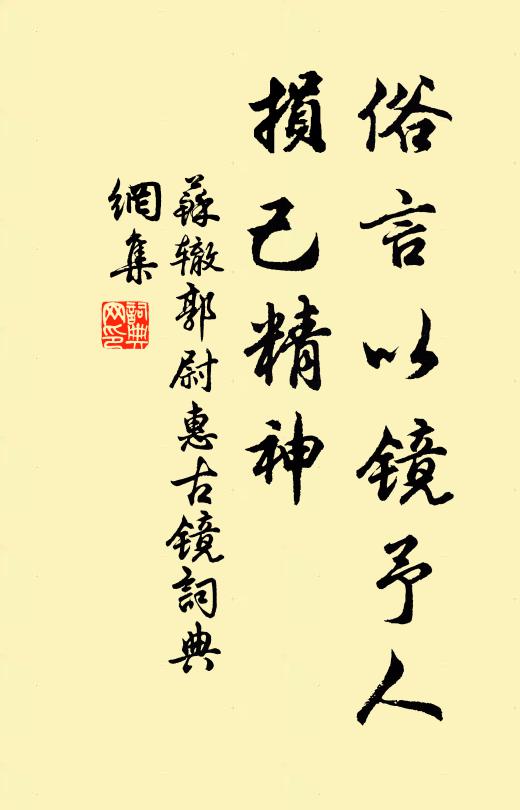 俗言以镜予人
損己精神
蘇辙郭尉惠古镜詞典
網集
詞典
网印